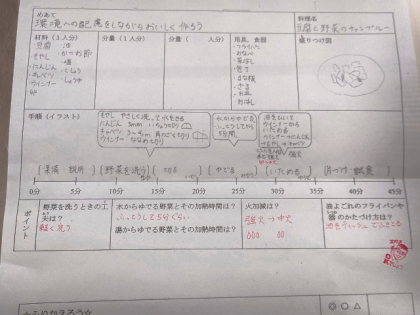 めあて
環境への配慮をしながらおいしく作ろう
料理名
豆腐と野菜のチャンプルー
材料(1人分)
分量(1人分)
分量( 人分)
用具、食器
盛りつけ図
豆腐 油
もやし かつお節
にんじん 塩
キャベツ こしょう
ウインナー しょうゆ
フライパン
おなべ
菜ばし
包丁
まな板
さら
おはし
手順(イラスト)
もやし やさしく洗って水をきる
にんじん 5mm いちょう切り
キャベツ 3~4cm 角のざく切り
ウインナー ななめ切り
水からゆでる
ふっとうして
5分間
油をひいて
ウインナーから
いためる
(準備・説明) (野菜を洗う) (切る) (ゆでる) (いためる) (片づけ・試食)
0分 5分 10分 15分 20分 25分 30分 35分 40分 45分
ポイント
野菜を洗うときの工夫は?
軽く洗う
水からゆでる野菜とその加熱時間は?
ふっとうして5分ぐらい
湯からゆでる野菜とその加熱時間は?
火加減は?
強火→中火
油よごれのフライパンや
器のかたづけ方は?
油をティッシュでふきとる
☆ふりかえろう☆
◎ ○ △